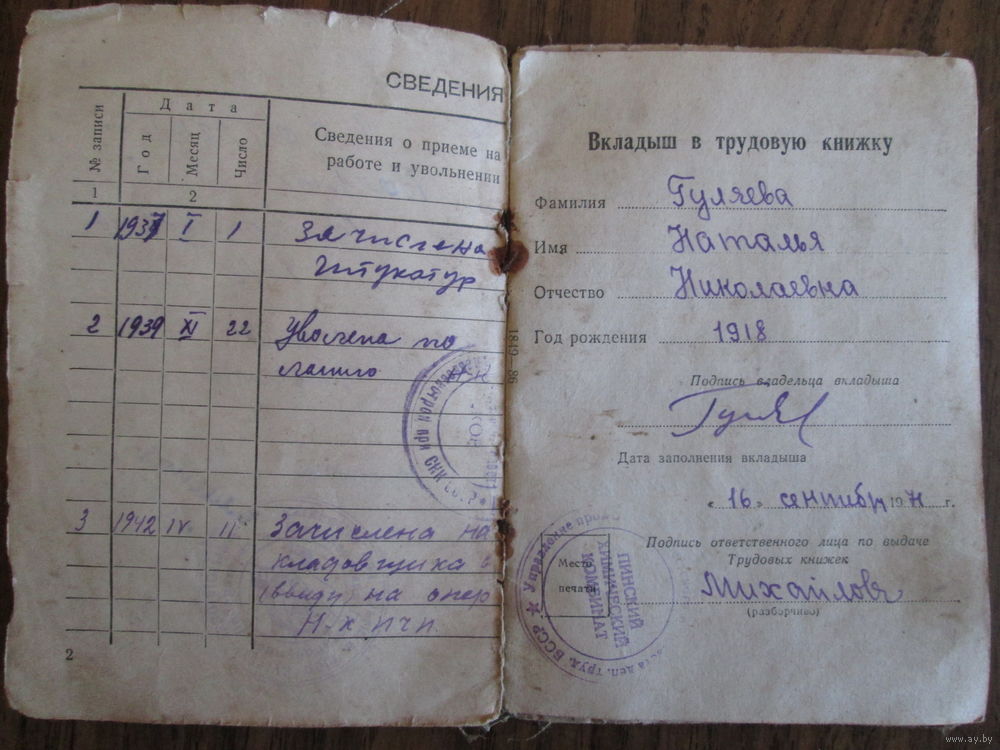 СВЕДЕНИЯ
№ записи
Дата
Год
Месяц
Число
Сведения о приеме на
работе и увольнении
1
2
1 1937 I 1 Зачислена
Штукатур
2 1939 XI 22 Уволена по
3 1942 IV 11 Зачислена на
кладовщика в
на
2
1819—86
Вкладыш в трудовую книжку
Фамилия Гуляева
Имя Наталья
Отчество Николаевна
Год рождения 1918
Подпись владельца вкладыша
Дата заполнения вкладыша
«16» сентября 1971 г.
Подпись ответственного лица по выдаче
Трудовых книжек
Место
печати
Михайлова
(разборчиво)
ПИНСКИЙ
ХИМИЧЕСКИЙ
КОМБИНАТ
Управление
деп. труд. БССР
при СНК
www.ay.by